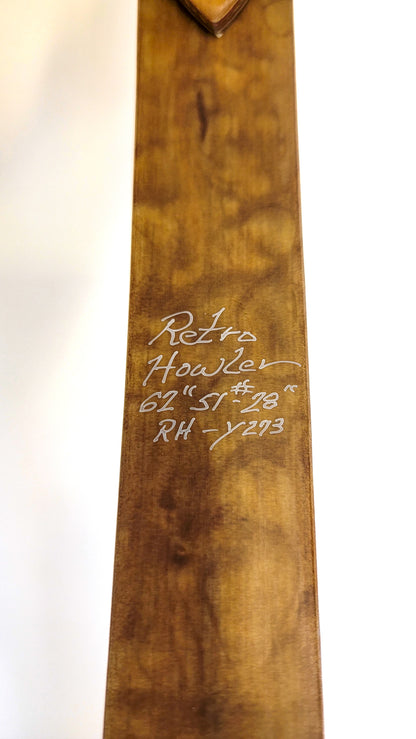 Retro
Howler
62" 51#-28"
RH-Y273